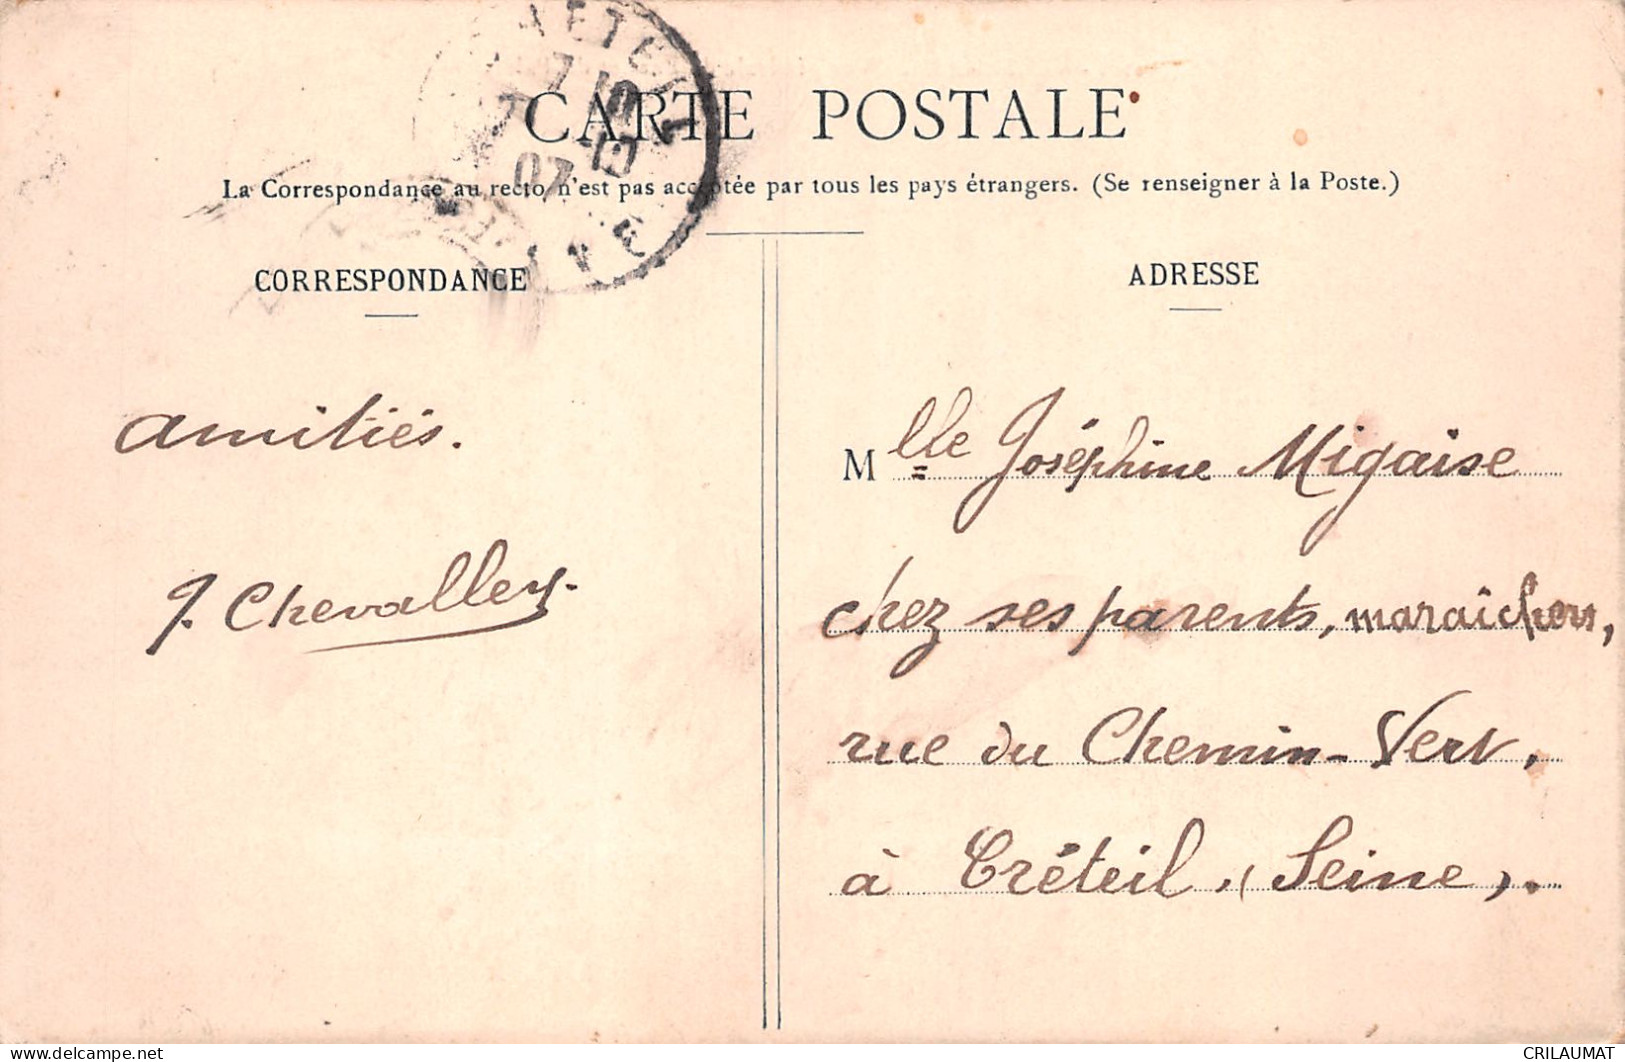 CARTE POSTALE
La Correspondance au recto n'est pas acceptée par tous les pays étrangers. (Se renseigner à la Poste.)
CORRESPONDANCE
amitiés.
J. Chevalley.
ADRESSE
Mlle Joséphine Migaise
chez ses parents, maraîchers,
rue du Chemin-Vert,
à Créteil, (Seine).
CRILAUMAT